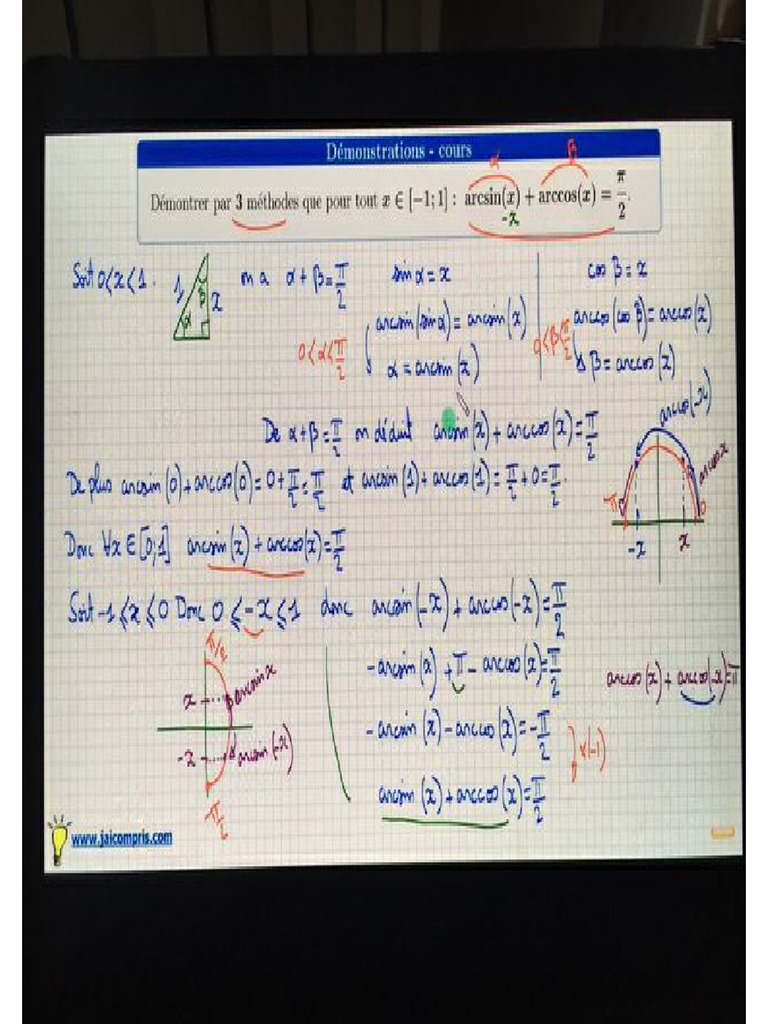 Démonstrations - cours
α β
Démontrer par 3 méthodes que pour tout x ∈ [−1; 1] : arcsin(x) + arccos(x) = π/2.
-x
Soit 0<x<1. 1 β x α on a α+β=π/2 sin α = x cos β = x
arcsin(sin α) = arcsin(x) arccos(cos β) = arccos(x)
0<α<π/2 α = arcsin(x) 0<β<π/2 β = arccos(x)
arccos(-x)
De α+β=π/2 on déduit arcsin(x) + arccos(x) = π/2
arccos x
De plus arcsin(0)+arccos(0)=0+π/2=π/2 et arcsin(1)+arccos(1)=π/2+0=π/2.
π 0
-x x
Donc ∀x∈[0;1] arcsin(x)+arccos(x)=π/2
Soit -1⩽x⩽0 Donc 0⩽-x⩽1 donc arcsin(-x)+arccos(-x)=π/2
π/2
-arcsin(x)+π-arccos(x)=π/2 arccos(x)+arccos(-x)=π
x arcsin x
-arcsin(x)-arccos(x)=-π/2
-x arcsin(-x)
×(-1)
arcsin(x)+arccos(x)=π/2
-π/2
www.jaicompris.com